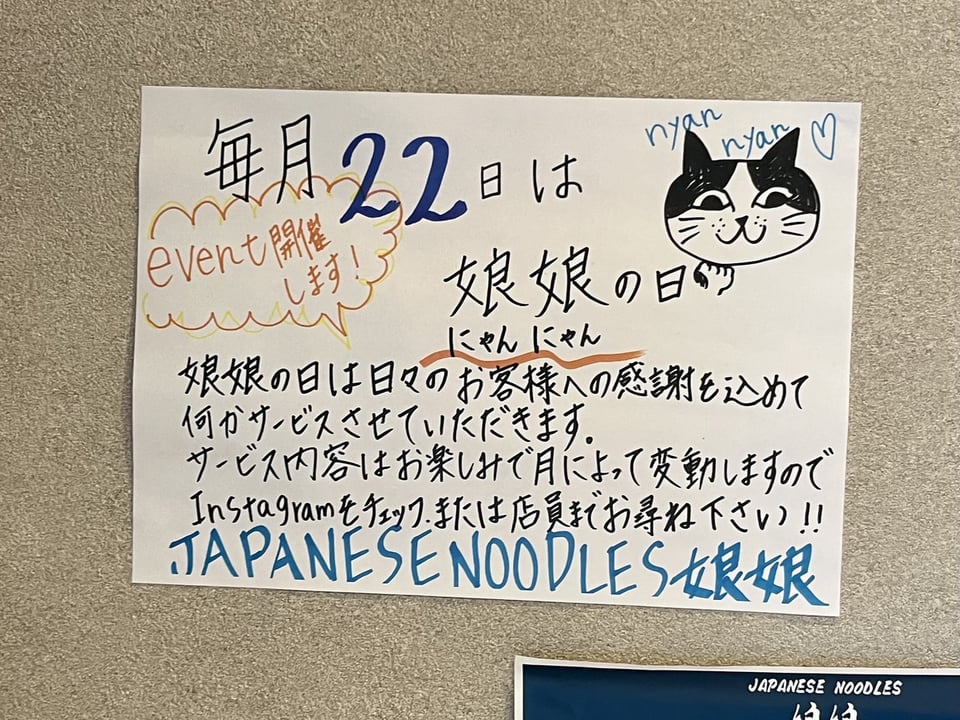 毎月22日は
nyan
nyan♡
event開催
します!
娘娘の日
にゃんにゃん
娘娘の日は日々のお客様への感謝を込めて
何かサービスさせていただきます。
サービス内容はお楽しみで月によって変動しますので
Instagramをチェック、または店員までお尋ね下さい!!
JAPANESE NOODLES 娘娘
JAPANESE NOODLES